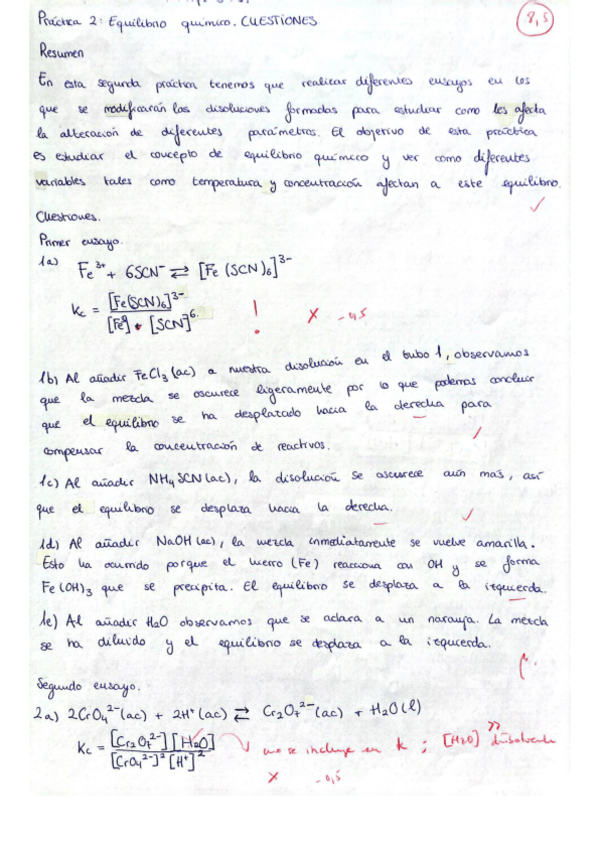 Práctica 2: Equilibrio químico. CUESTIONES
8,5
Resumen
En esta segunda práctica tenemos que realizar diferentes ensayos en los
que se modificarán las disoluciones formadas para estudiar como les afecta
la alteración de diferentes parámetros. El objetivo de esta práctica
es estudiar el concepto de equilibrio químico y ver como diferentes
variables tales como temperatura y concentración afectan a este equilibrio.
Cuestiones.
Primer ensayo.
1a) Fe³⁺ + 6SCN⁻ ⇄ [Fe(SCN)6]³⁻
Kc = [Fe(SCN)6]³⁻ / [Fe] · [SCN]⁶ ! X -0,5
1b) Al añadir FeCl3 (ac) a nuestra disolución en el tubo 1, observamos
que la mezcla se oscurece ligeramente por lo que podemos concluir
que el equilibrio se ha desplazado hacia la derecha para
compensar la concentración de reactivos.
1c) Al añadir NH4SCN (ac), la disolución se oscurece aún más, así
que el equilibrio se desplaza hacia la derecha.
1d) Al añadir NaOH (ac), la mezcla inmediatamente se vuelve amarilla.
Esto ha ocurrido porque el hierro (Fe) reacciona con OH y se forma
Fe(OH)3 que se precipita. El equilibrio se desplaza a la izquierda.
1e) Al añadir H2O observamos que se aclara a un naranja. La mezcla
se ha diluido y el equilibrio se desplaza a la izquierda.
Segundo ensayo.
2a) 2CrO4²⁻ (ac) + 2H⁺ (ac) ⇄ Cr2O7²⁻ (ac) + H2O (l)
Kc = [Cr2O7²⁻] [H2O] / [CrO4²⁻]² [H⁺]² no se incluye en K ; [H2O] >> disolvente
X -0,5